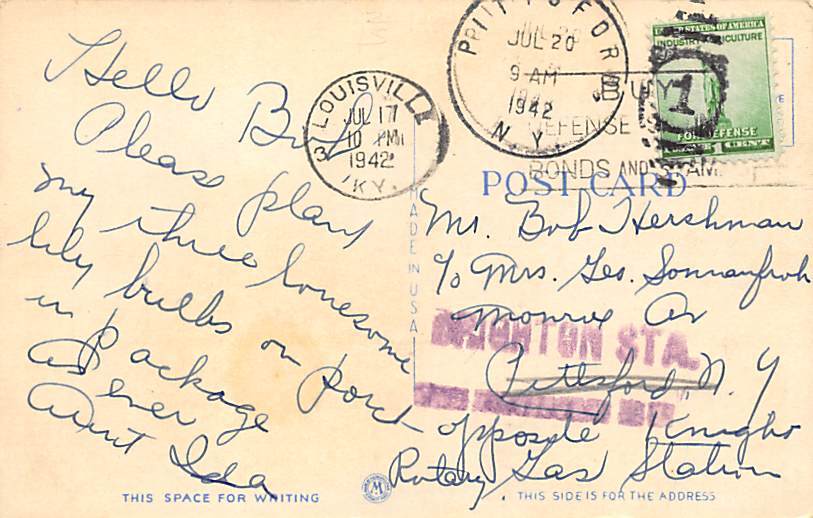 Hello Bob
Please plant
my three lonesome
lily bulbs on port
in package
As ever
Aunt Ida
THIS SPACE FOR WRITING
LOUISVILLE
JUL 17
10 PM
1942
KY.
3
PITTSFORD
JUL 20
9 AM
1942
N.Y.
BUY
DEFENSE
BONDS AND STAMPS
UNITED STATES OF AMERICA
INDUSTRY AGRICULTURE
FOR DEFENSE
1 CENT
1
POST CARD
MADE IN U.S.A.
Mr. Bob Hershman
c/o Mrs. Geo. Sonnanfroh
Monroe Av
BRIGHTON STA.
Pittsford, N. Y
opposite Knights
Rotary Gas Station
M
THIS SIDE IS FOR THE ADDRESS